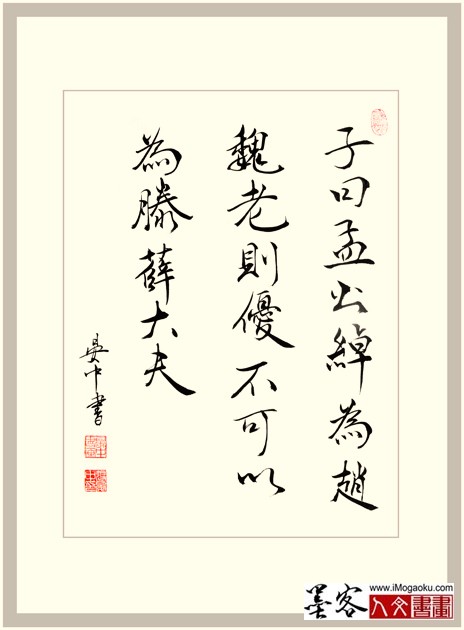 子曰孟公綽為趙
魏老則優不可以
為滕薛大夫
中書
www.iMogaoku.com
墨客人文書畫